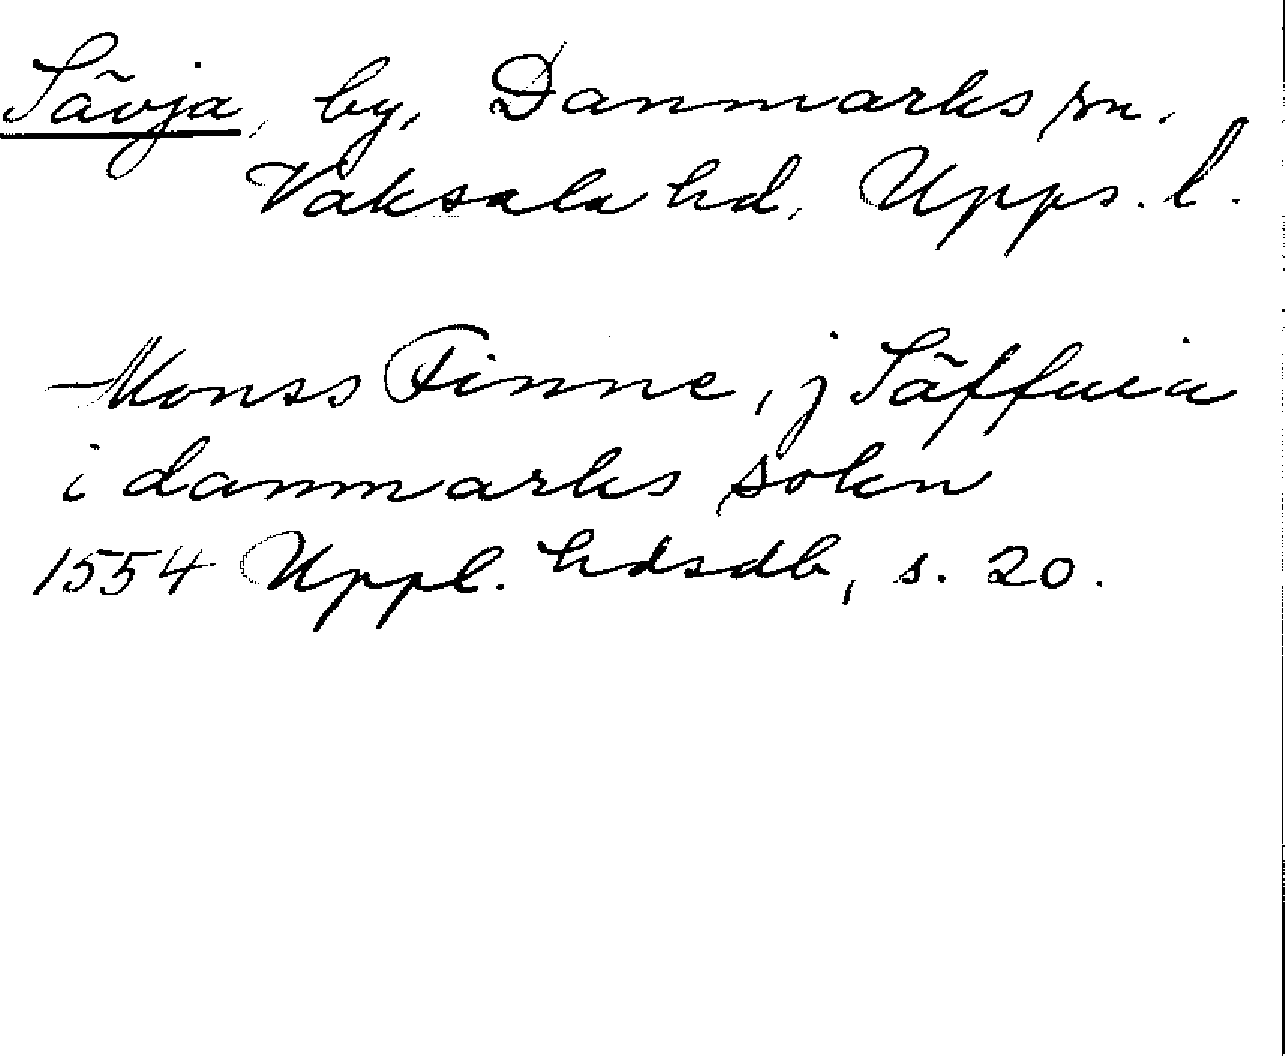 Sävja, by, Danmarks sn.
Vaksala hd, Upps. l.
Monss Finne, j Säffuia
i danmarks sokn
1554 Uppl. hdsdb, s. 20.